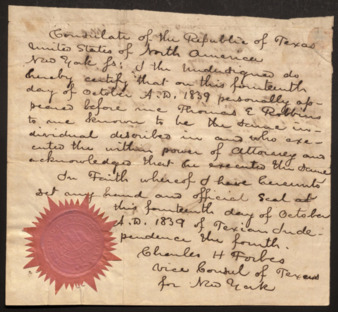 Consulate of the Republic of Texas
United States of North America
New York ss: I the undersigned do
hereby certify that on this fourteenth
day of October A.D. 1839 personally ap-
peared before me Thomas E. Robbins
to me known to be the same in-
dividual described in and who exe-
cuted the within power of Attorney and
acknowledged that he executed the same
In Faith whereof I have hereunto
set my hand and official Seal at
this fourteenth day of October
A.D. 1839 of Texian Inde-
pendence the fourth.
Charles H Forbes
Vice Consul of Texas
for New York